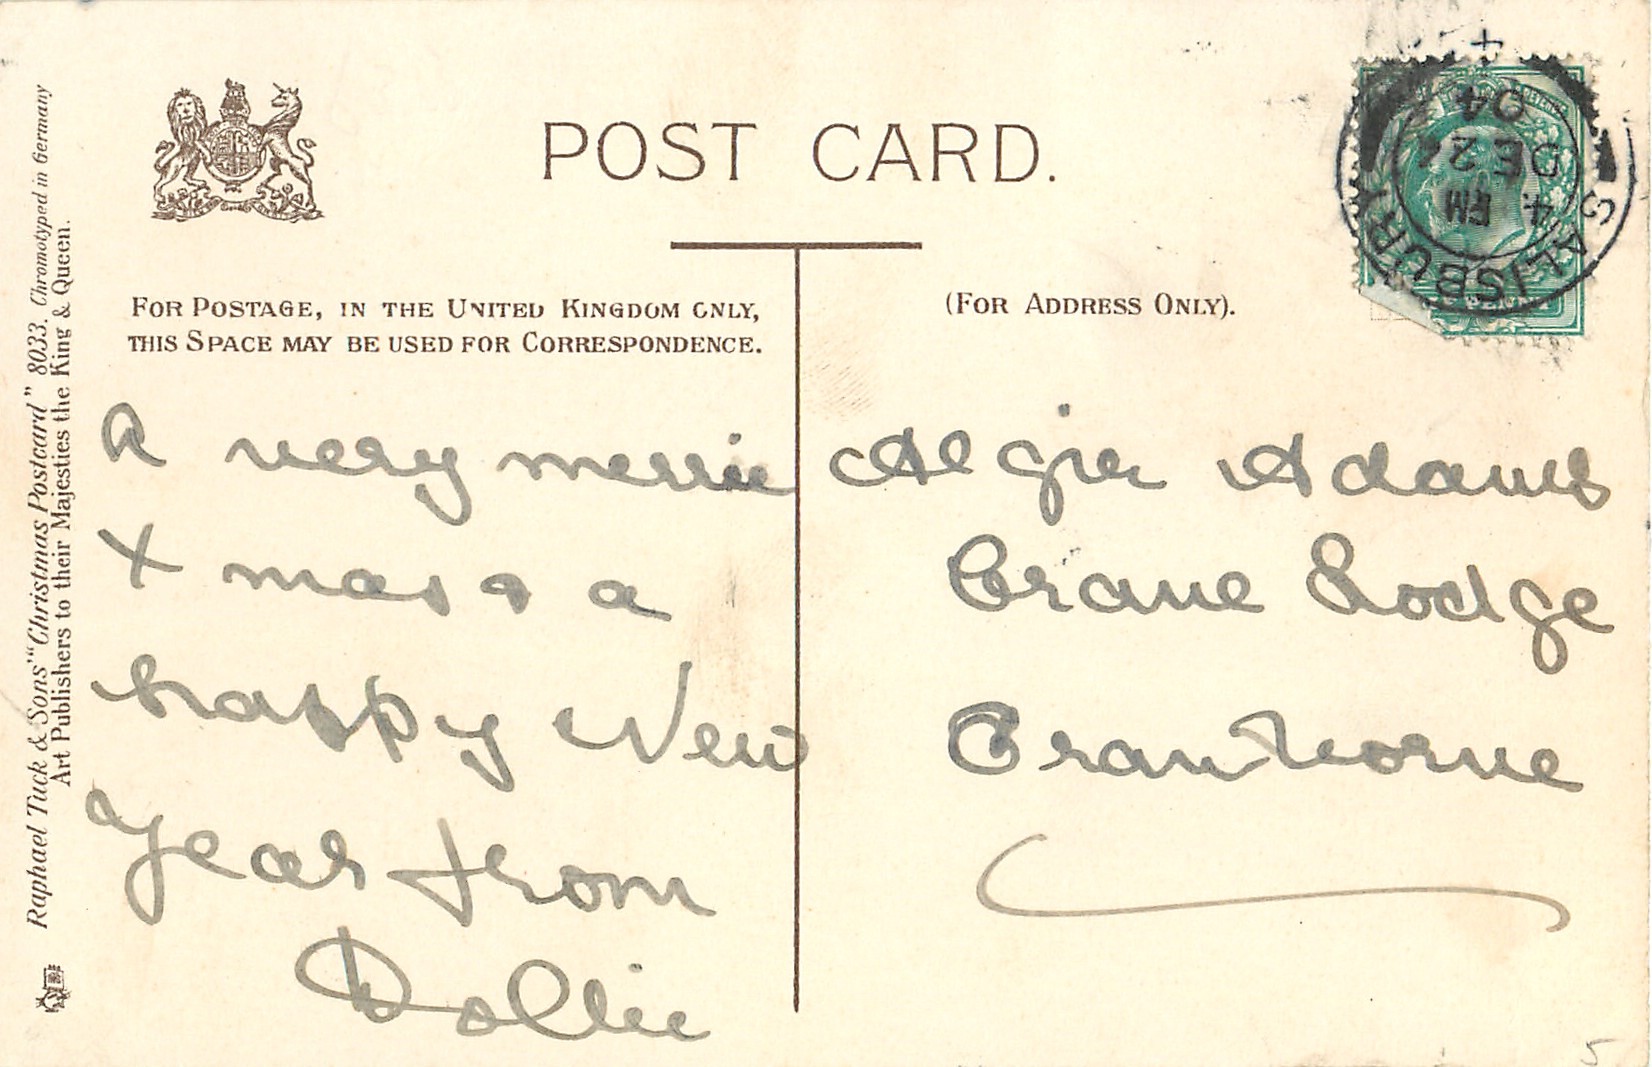 POST CARD.
FOR POSTAGE, IN THE UNITED KINGDOM ONLY,
THIS SPACE MAY BE USED FOR CORRESPONDENCE.
(FOR ADDRESS ONLY).
A very merrie
Xmas & a
happy New
Year from
Dollie
Algie Adams
Crane Lodge
Cranborne
SALISBURY
4 PM
DE 24
04
Raphael Tuck & Sons' "Christmas Postcard" 8033. Chromotyped in Germany
Art Publishers to their Majesties the King & Queen.
5